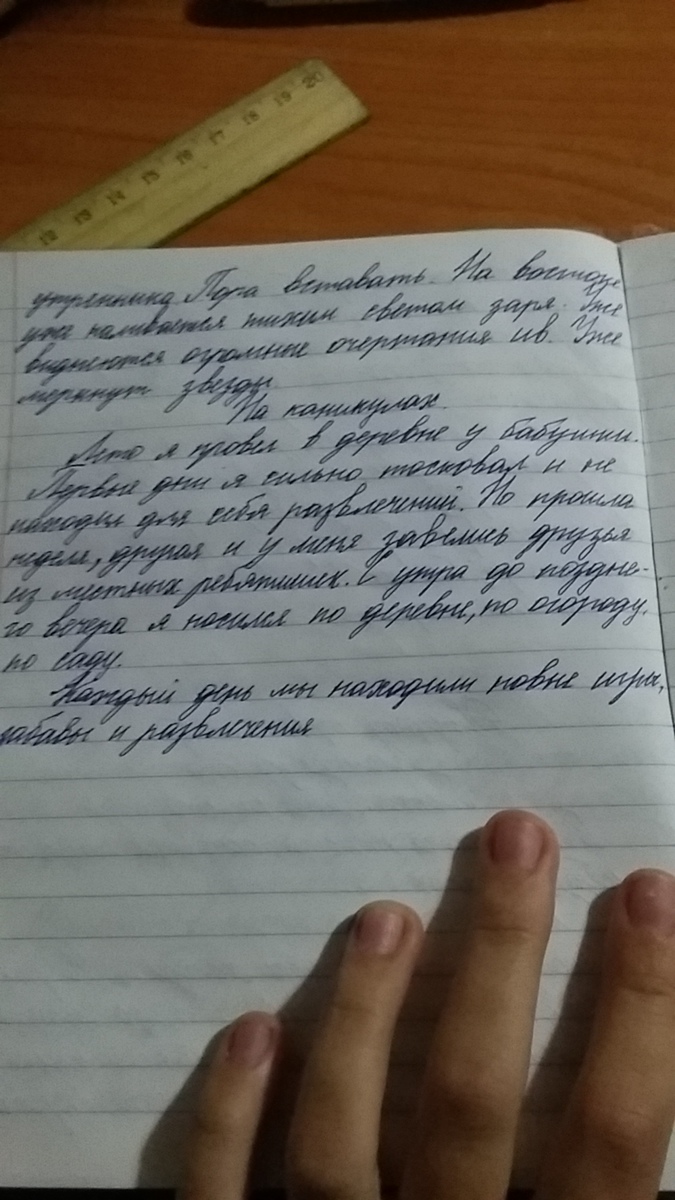 20 19 18 17 16 15 14 13 12 11
утренника Пора вставать. На востоке
уже наливается тихим светом заря. Уже
виднеются огромные очертания ив. Уже
меркнут звезды
На каникулах.
Лето я провел в деревне у бабушки.
Первые дни я сильно тосковал и не
находил для себя развлечений. Но прошла
неделя, другая и у меня завелись друзья
из местных ребятишек. С утра до поздне-
го вечера я носился по деревне, по огороду,
по саду.
Каждый день мы находили новые игры,
забавы и развлечения